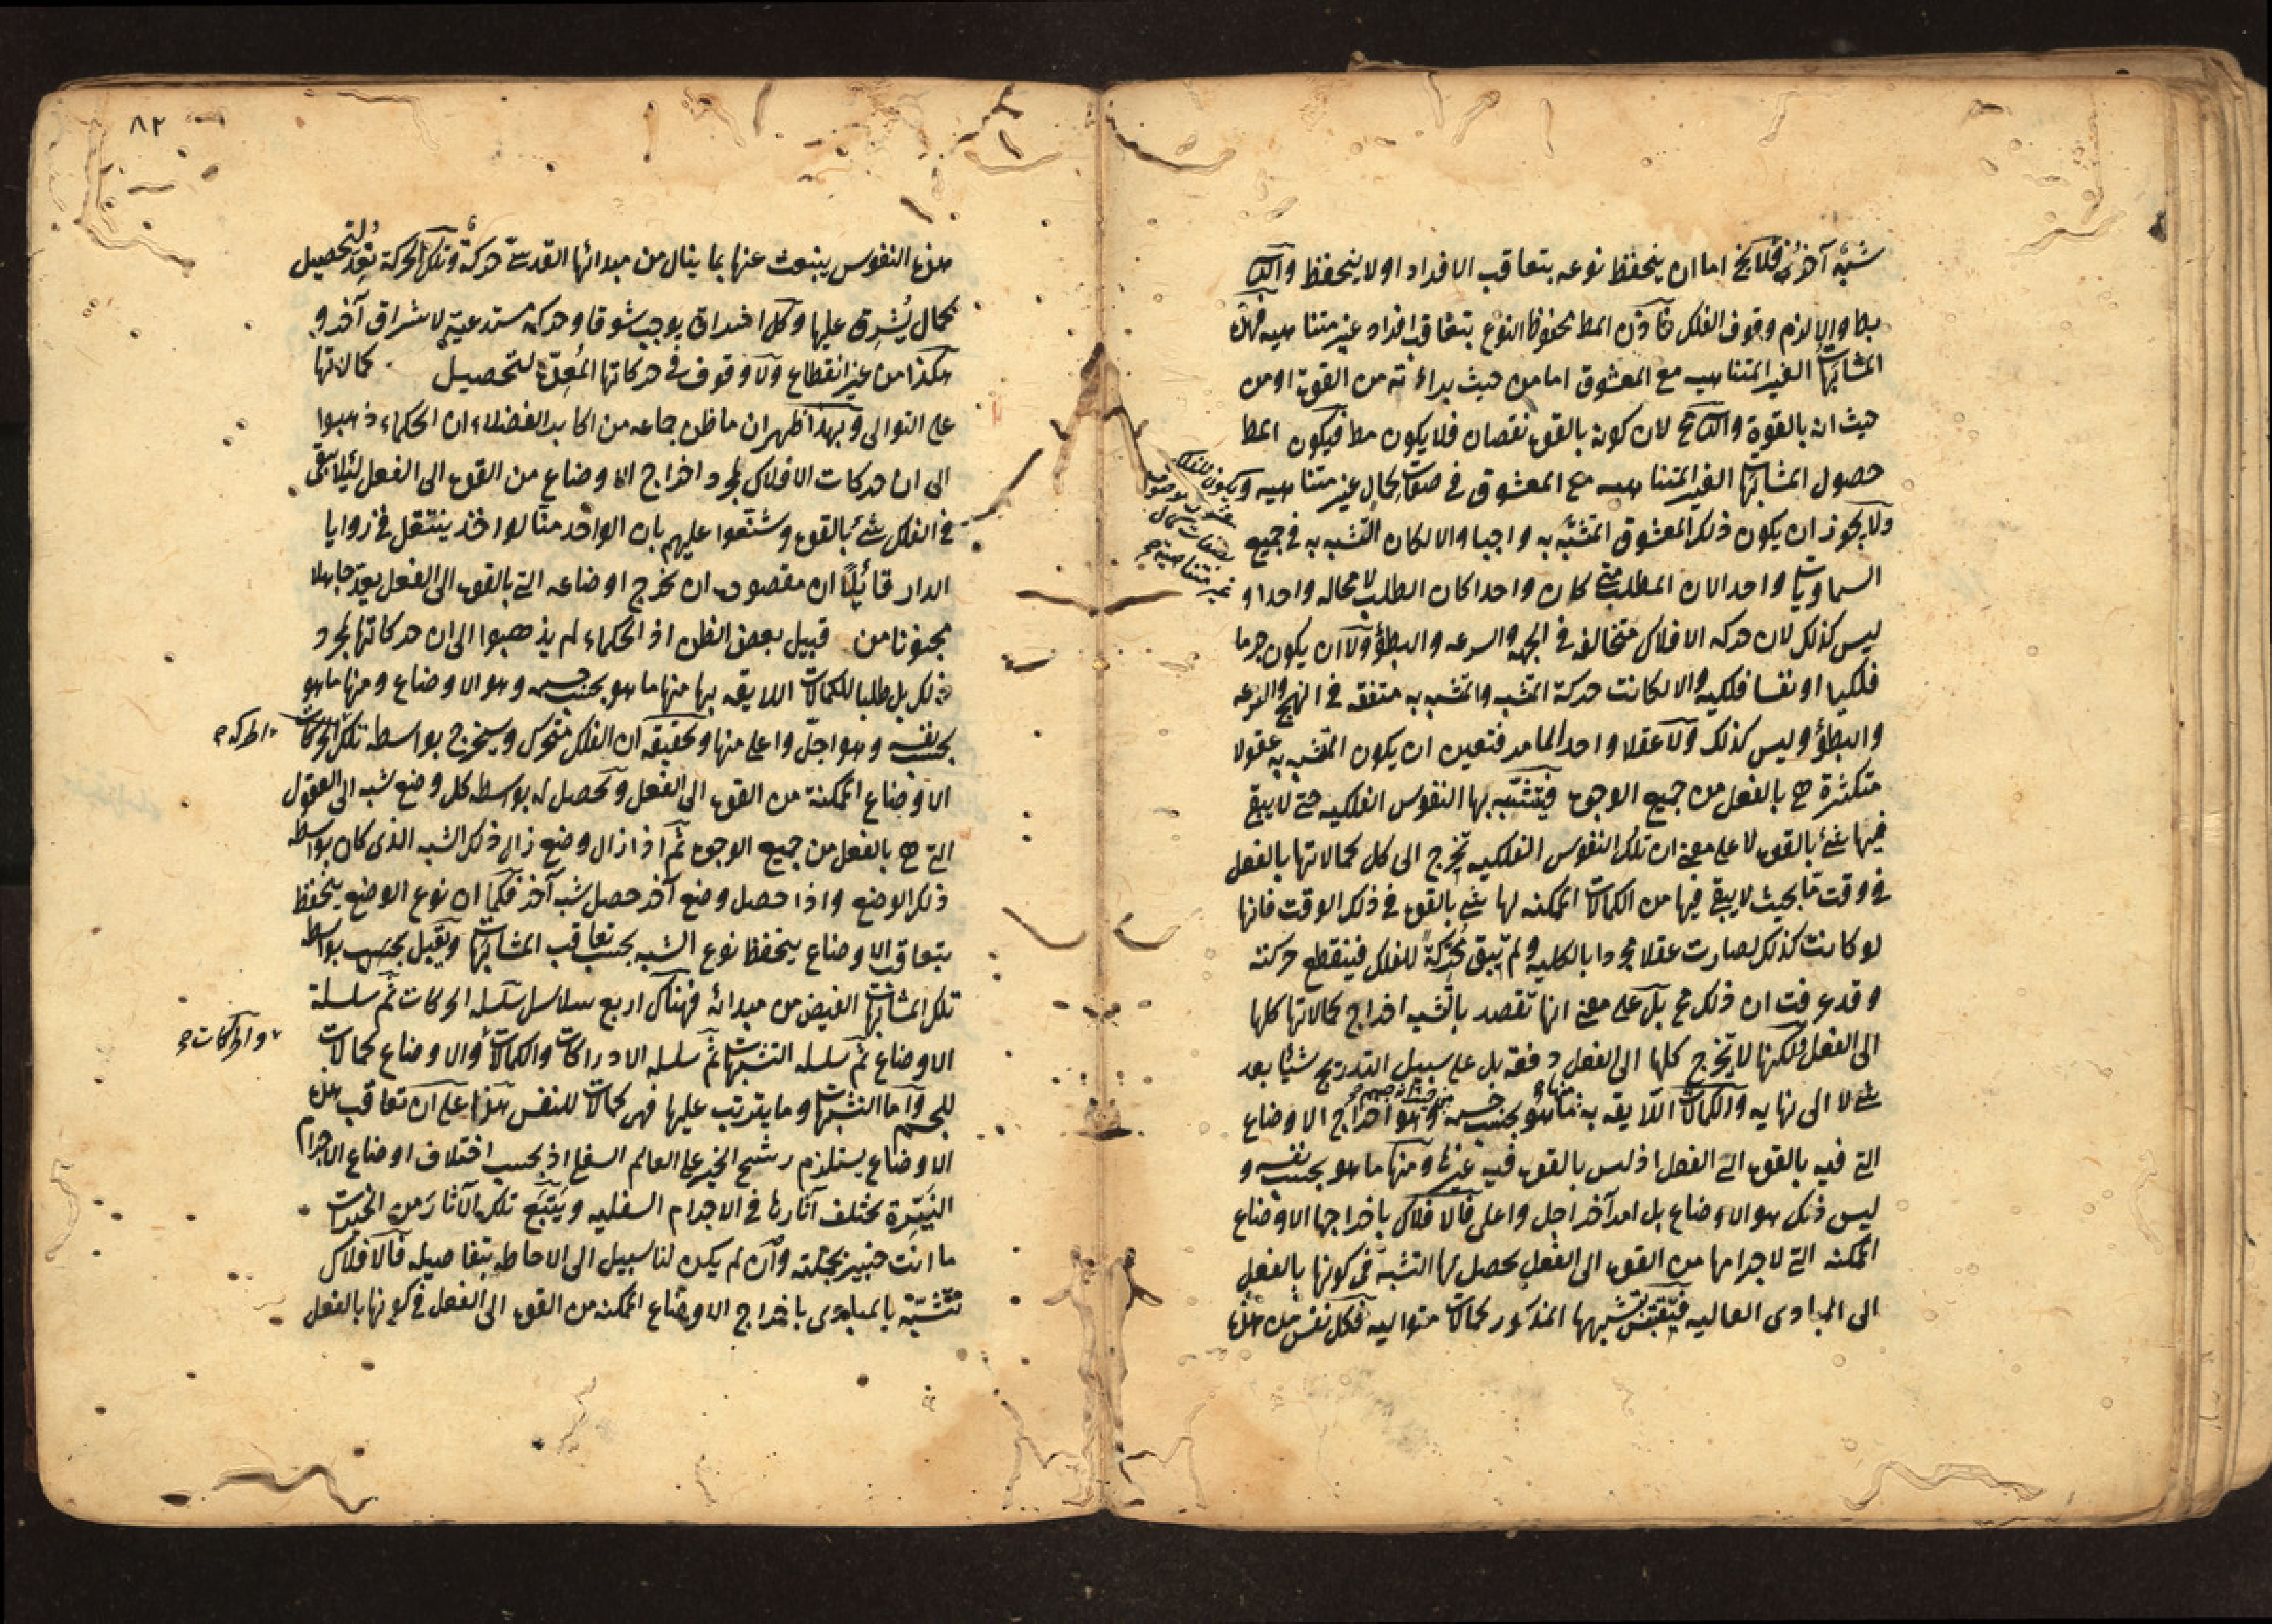 شبه آخر فلا يخ اما ان ينحفظ نوعه بتعاقب الافراد اولا ينحفظ والثانى
بط والا لزم وقوف الفلك فاذن المط محفوظ النوع بتعاقب افراد غير متناهيه فهذه
المشابهات الغير المتناهيه مع المعشوق اما من حيث براءته من القوة او من
حيث انه بالقوة والثانى مح لان كونه بالقوه نقصان فلا يكون مط فيكون المط
حصول المشابهات الغير المتناهيه مع المعشوق فى صفات كمال غير متناهيه ويكون للفلك
معشوق موصوف
بصفات كمال
غير متناهية صح
ولا يجوز ان يكون ذلك المعشوق المتشبه به واجبا والا لكان التشبه به فى جميع
السماويات واحدا لان المطلب متى كان واحدا كان الطلب لا محاله واحدا و
ليس كذلك لان حركه الافلاك متخالفه فى الجهه والسرعه والبطؤ ولا ان يكون جرما
فلكيا او نفسا فلكيه والا لكانت حركة المتشبه والمتشبه به متفقه فى النهج والسرعه
والبطؤ وليس كذلك ولا عقلا واحدا لما مر فتعين ان يكون المتشبه به عقولا
متكثرة هى بالفعل من جميع الوجوه فيتشبه بها النفوس الفلكيه حتى لا يبقى
فيها شئ بالقوه لا على معنى ان تلك النفوس الفلكيه تخرج الى كل كمالاتها بالفعل
فى وقت ما بحيث لا يبقى فيها من الكمالات الممكنه لها شئ بالقوه فى ذلك الوقت فانها
لو كانت كذلك لصارت عقلا مجردا بالكليه ولم تبق محركة للفلك فينقطع حركته
وقد عرفت ان ذلك مح بل على معنى انها تقصد بالتشبه اخراج كمالاتها كلها
الى الفعل ولكنها لا تخرج كلها الى الفعل دفعة بل على سبيل التدريج شيئا بعد
شئ لا الى نهايه والكمالات اللايقه به منها ما هو بحسب جسمه وهو اخراج الاوضاع
التى فيه بالقوه الى الفعل اذ ليس بالقوه فيه غيرها ومنها ما هو بحسب نفسه و
ليس ذلك هو الاوضاع بل امر آخر اجل واعلى فالافلاك باخراجها الاوضاع
الممكنه التى لاجرامها من القوه الى الفعل يحصل لها التشبه فى كونها بالفعل
الى المبادى العاليه فيقتبس بتشبهها المذكور كمالات متواليه فكل نفس من هذه
٨٢
هذه النفوس ينبعث عنها بما ينال من مبدائها القدسى حركة وتلك الحركة تعد لتحصيل
كمال يشرق عليها وكل اشراق يوجب شوقا وحركه مستدعية لاشراق آخر و
هكذا من غير انقطاع ولا وقوف فى حركاتها المعدة لتحصيل كمالاتها
على التوالى وبهذا ظهر ان ما ظن جماعه من اكابر الفضلاء ان الحكماء ذهبوا
الى ان حركات الافلاك لمجرد اخراج الاوضاع من القوه الى الفعل لئيلا يبقى
فى الفلك شئ بالقوه وشنعوا عليهم بان الواحد منا لو اخذ ينتقل فى زوايا
الدار قائلا ان مقصوده ان يخرج اوضاعه التى بالقوه الى الفعل يعد جاهلا
مجنونا من قبيل بعض الظن اذ الحكماء لم يذهبوا الى ان حركاتها لمجرد
ذلك بل طلبا للكمالات اللايقه بها منها ما هو بحسب جسمه وهو الاوضاع ومنها ما هو
بحسب نفسه وهو اجل واعلى منها وتحقيقه ان الفلك متحرك ويخرج بواسطه تلك الحركات
الحركه صح
الاوضاع الممكنة من القوه الى الفعل وتحصل له بواسطه كل وضع شبه الى العقول
التى هى بالفعل من جميع الوجوه ثم اذا زال وضع زال ذلك الشبه الذى كان بواسطه
ذلك الوضع واذا حصل وضع آخر حصل شبه آخر فكما ان نوع الوضع ينحفظ
بتعاقب الاوضاع ينحفظ نوع الشبه بحسب تعاقب المشابهات ويقبل بحسب بواسطه
تلك المشابهات الفيض من مبدائه فهناك اربع سلاسل سلسله الحركات ثم سلسلة
الاوضاع ثم سلسله التشبهات ثم سلسله الادراكات والكمالات والاوضاع كمالات
والحركات صح
للجسم واما التشبهات وما يترتب عليها فهى كمالات للنفس هذا على ان تعاقب هذه
الاوضاع يستلزم رشح الخير على العالم السفلى اذ بحسب اختلاف اوضاع الاجرام
النيرة يختلف آثارها فى الاجرام السفليه ويتبع تلك الآثار من الخيرات
ما انت خبير بجملته وان لم يكن لنا سبيل الى الاحاطه بتفاصيله فالافلاك
تتشبه بالمبادى باخراج الاوضاع الممكنه من القوه الى الفعل فى كونها بالفعل